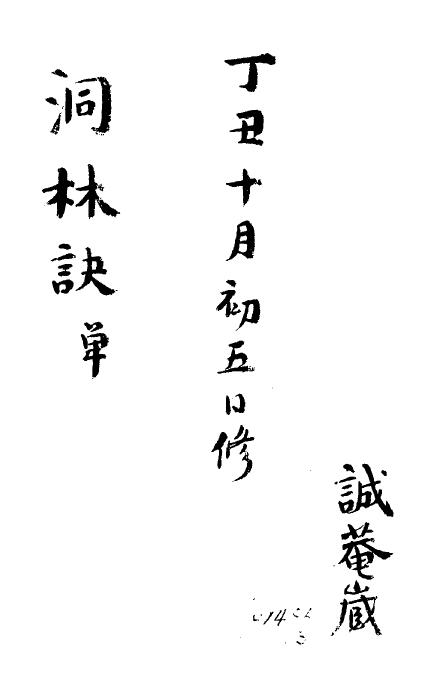 誠菴蔵
丁丑十月初五日修
洞林訣単